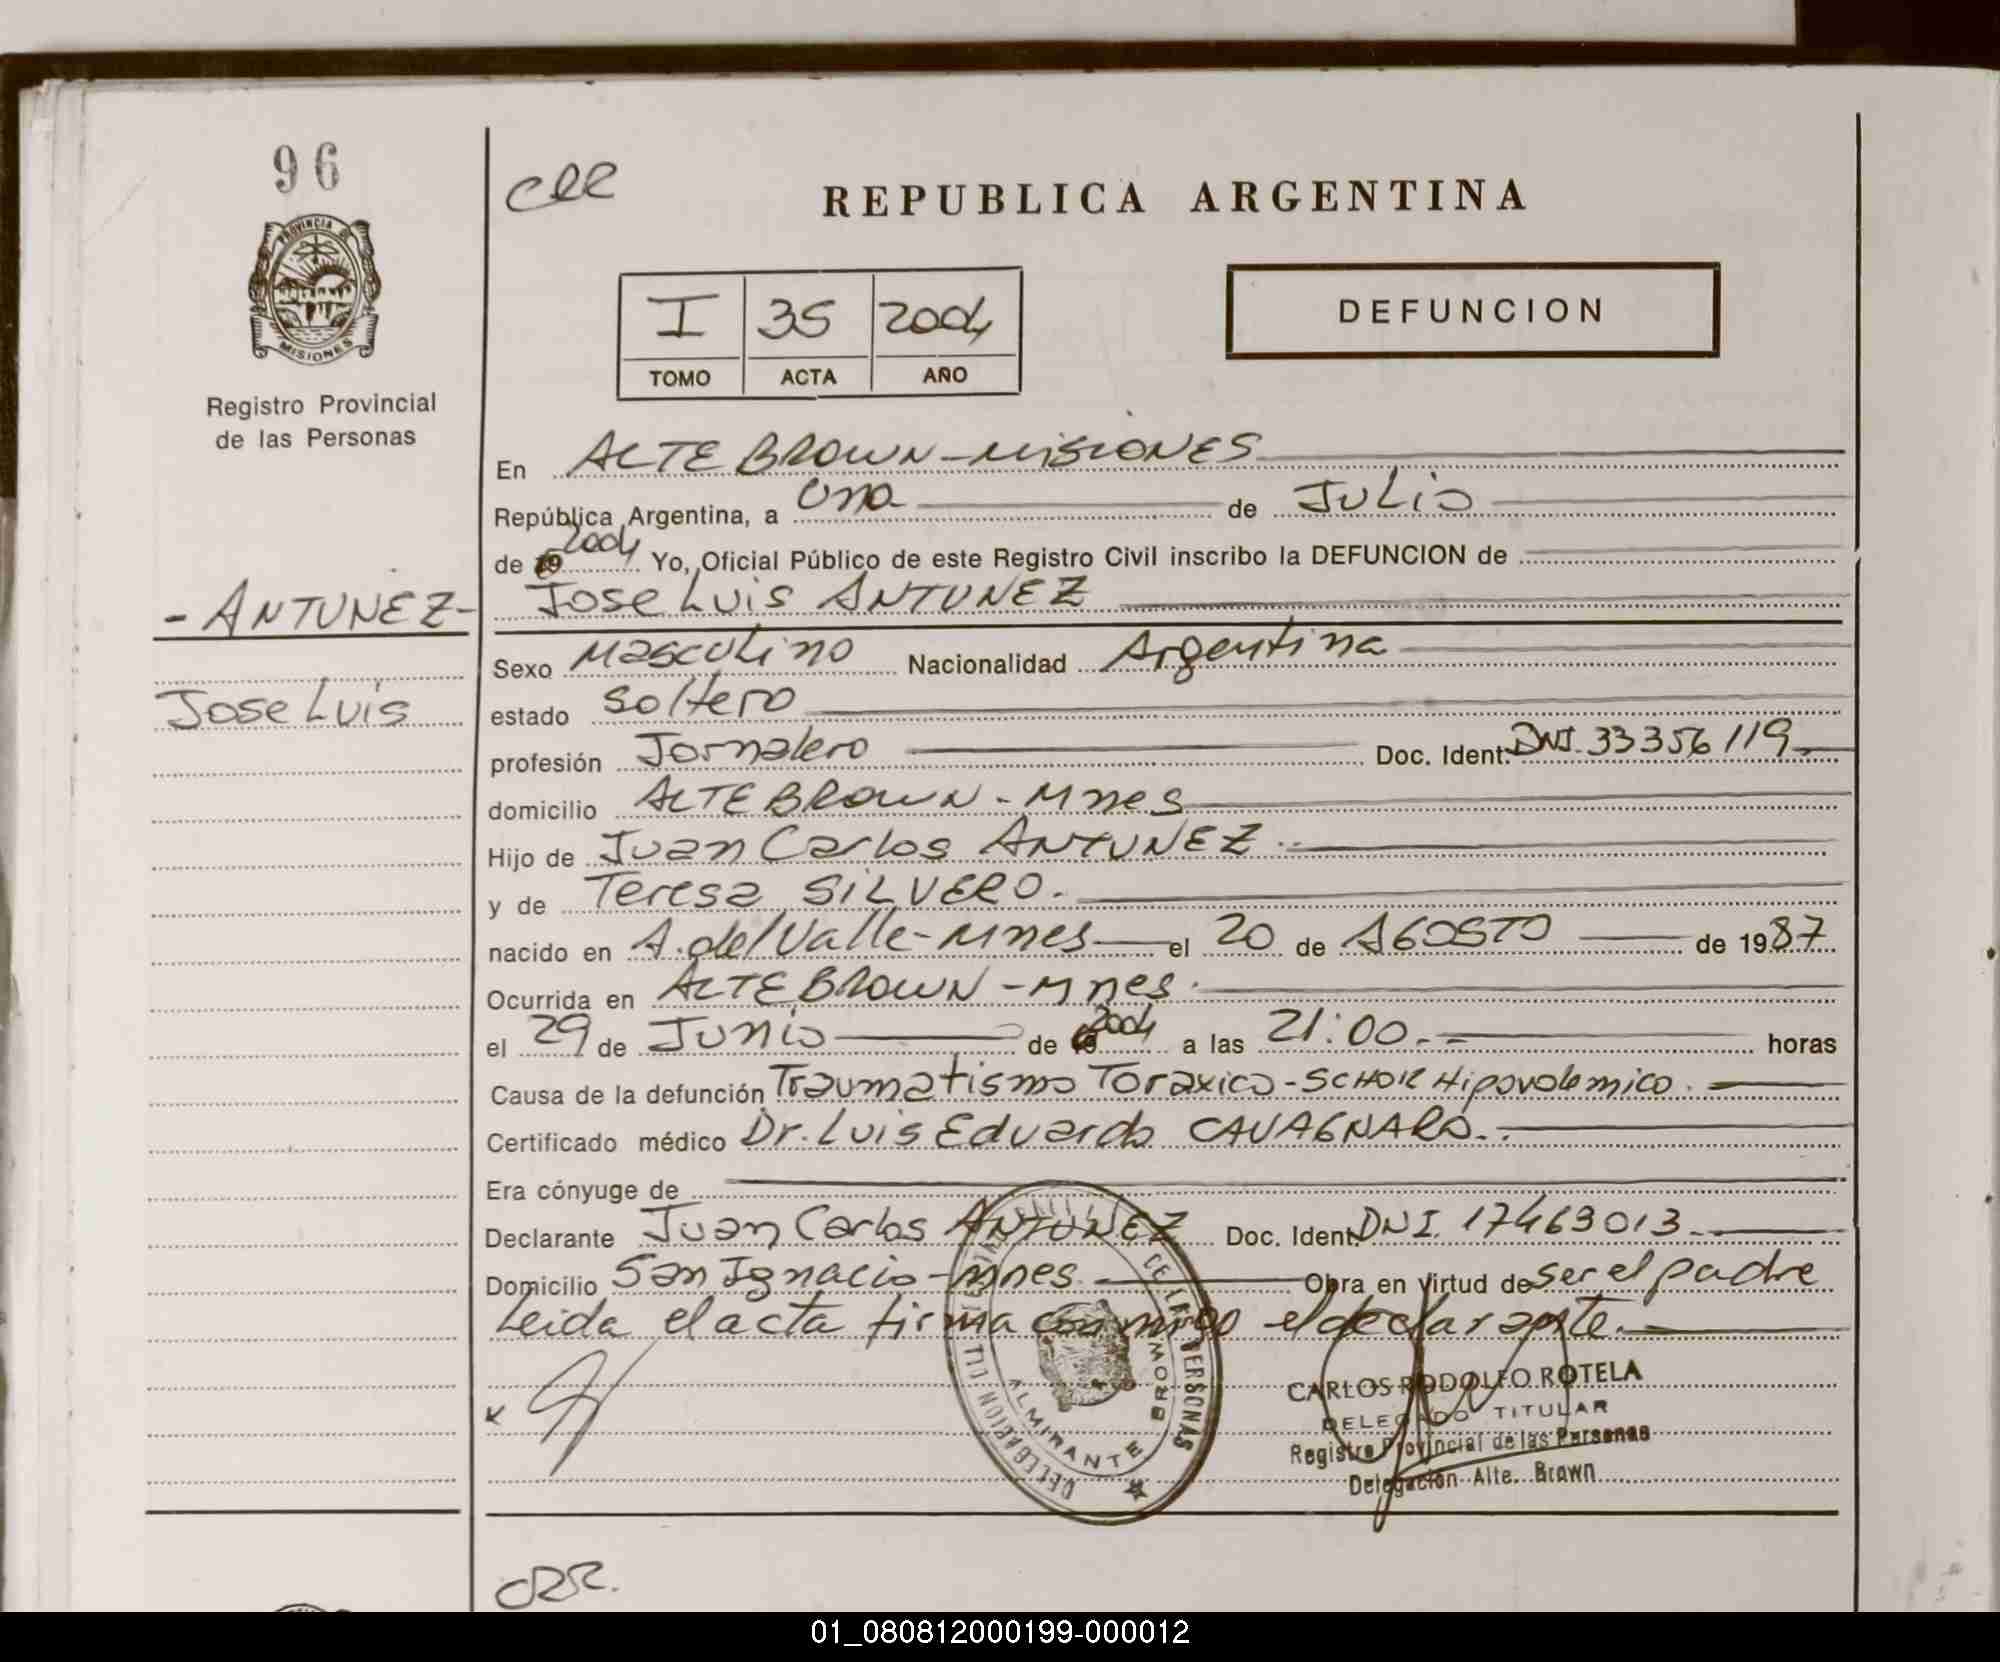 96
PROVINCIA DE
MISIONES
Registro Provincial
de las Personas
REPUBLICA ARGENTINA
I 35 2004
TOMO ACTA AÑO
DEFUNCION
En ALTE BROWN - MISIONES
República Argentina, a Uno de Julio
de 2004 Yo, Oficial Público de este Registro Civil inscribo la DEFUNCION de
- ANTUNEZ - Jose Luis ANTUNEZ
Sexo Masculino Nacionalidad Argentina
Jose Luis estado Soltero
profesión Jornalero Doc. Ident. DNI. 33356119
domicilio ALTE BROWN - Mnes
Hijo de Juan Carlos ANTUNEZ.
y de Teresa SILVERO.
nacido en A. del Valle - Mnes el 20 de AGOSTO de 1987
Ocurrida en ALTE BROWN - Mnes.
el 29 de Junio de 2004 a las 21:00 horas
Causa de la defunción Traumatismo Toraxico - SCHOK Hipovolemico.
Certificado médico Dr. Luis Eduardo CAVAGNARO.
Era cónyuge de
Declarante Juan Carlos ANTUNEZ Doc. Ident. DNI. 17463013
Domicilio San Ignacio - Mnes. Obra en virtud de ser el padre
Leida el acta firma conmigo el declarante.
DELEGACION
DE LAS PERSONAS
ALMIRANTE BROWN
CARLOS RODOLFO ROTELA
DELEGADO TITULAR
Registro Provincial de las Personas
Delegación Alte. Brown
01_080812000199-000012